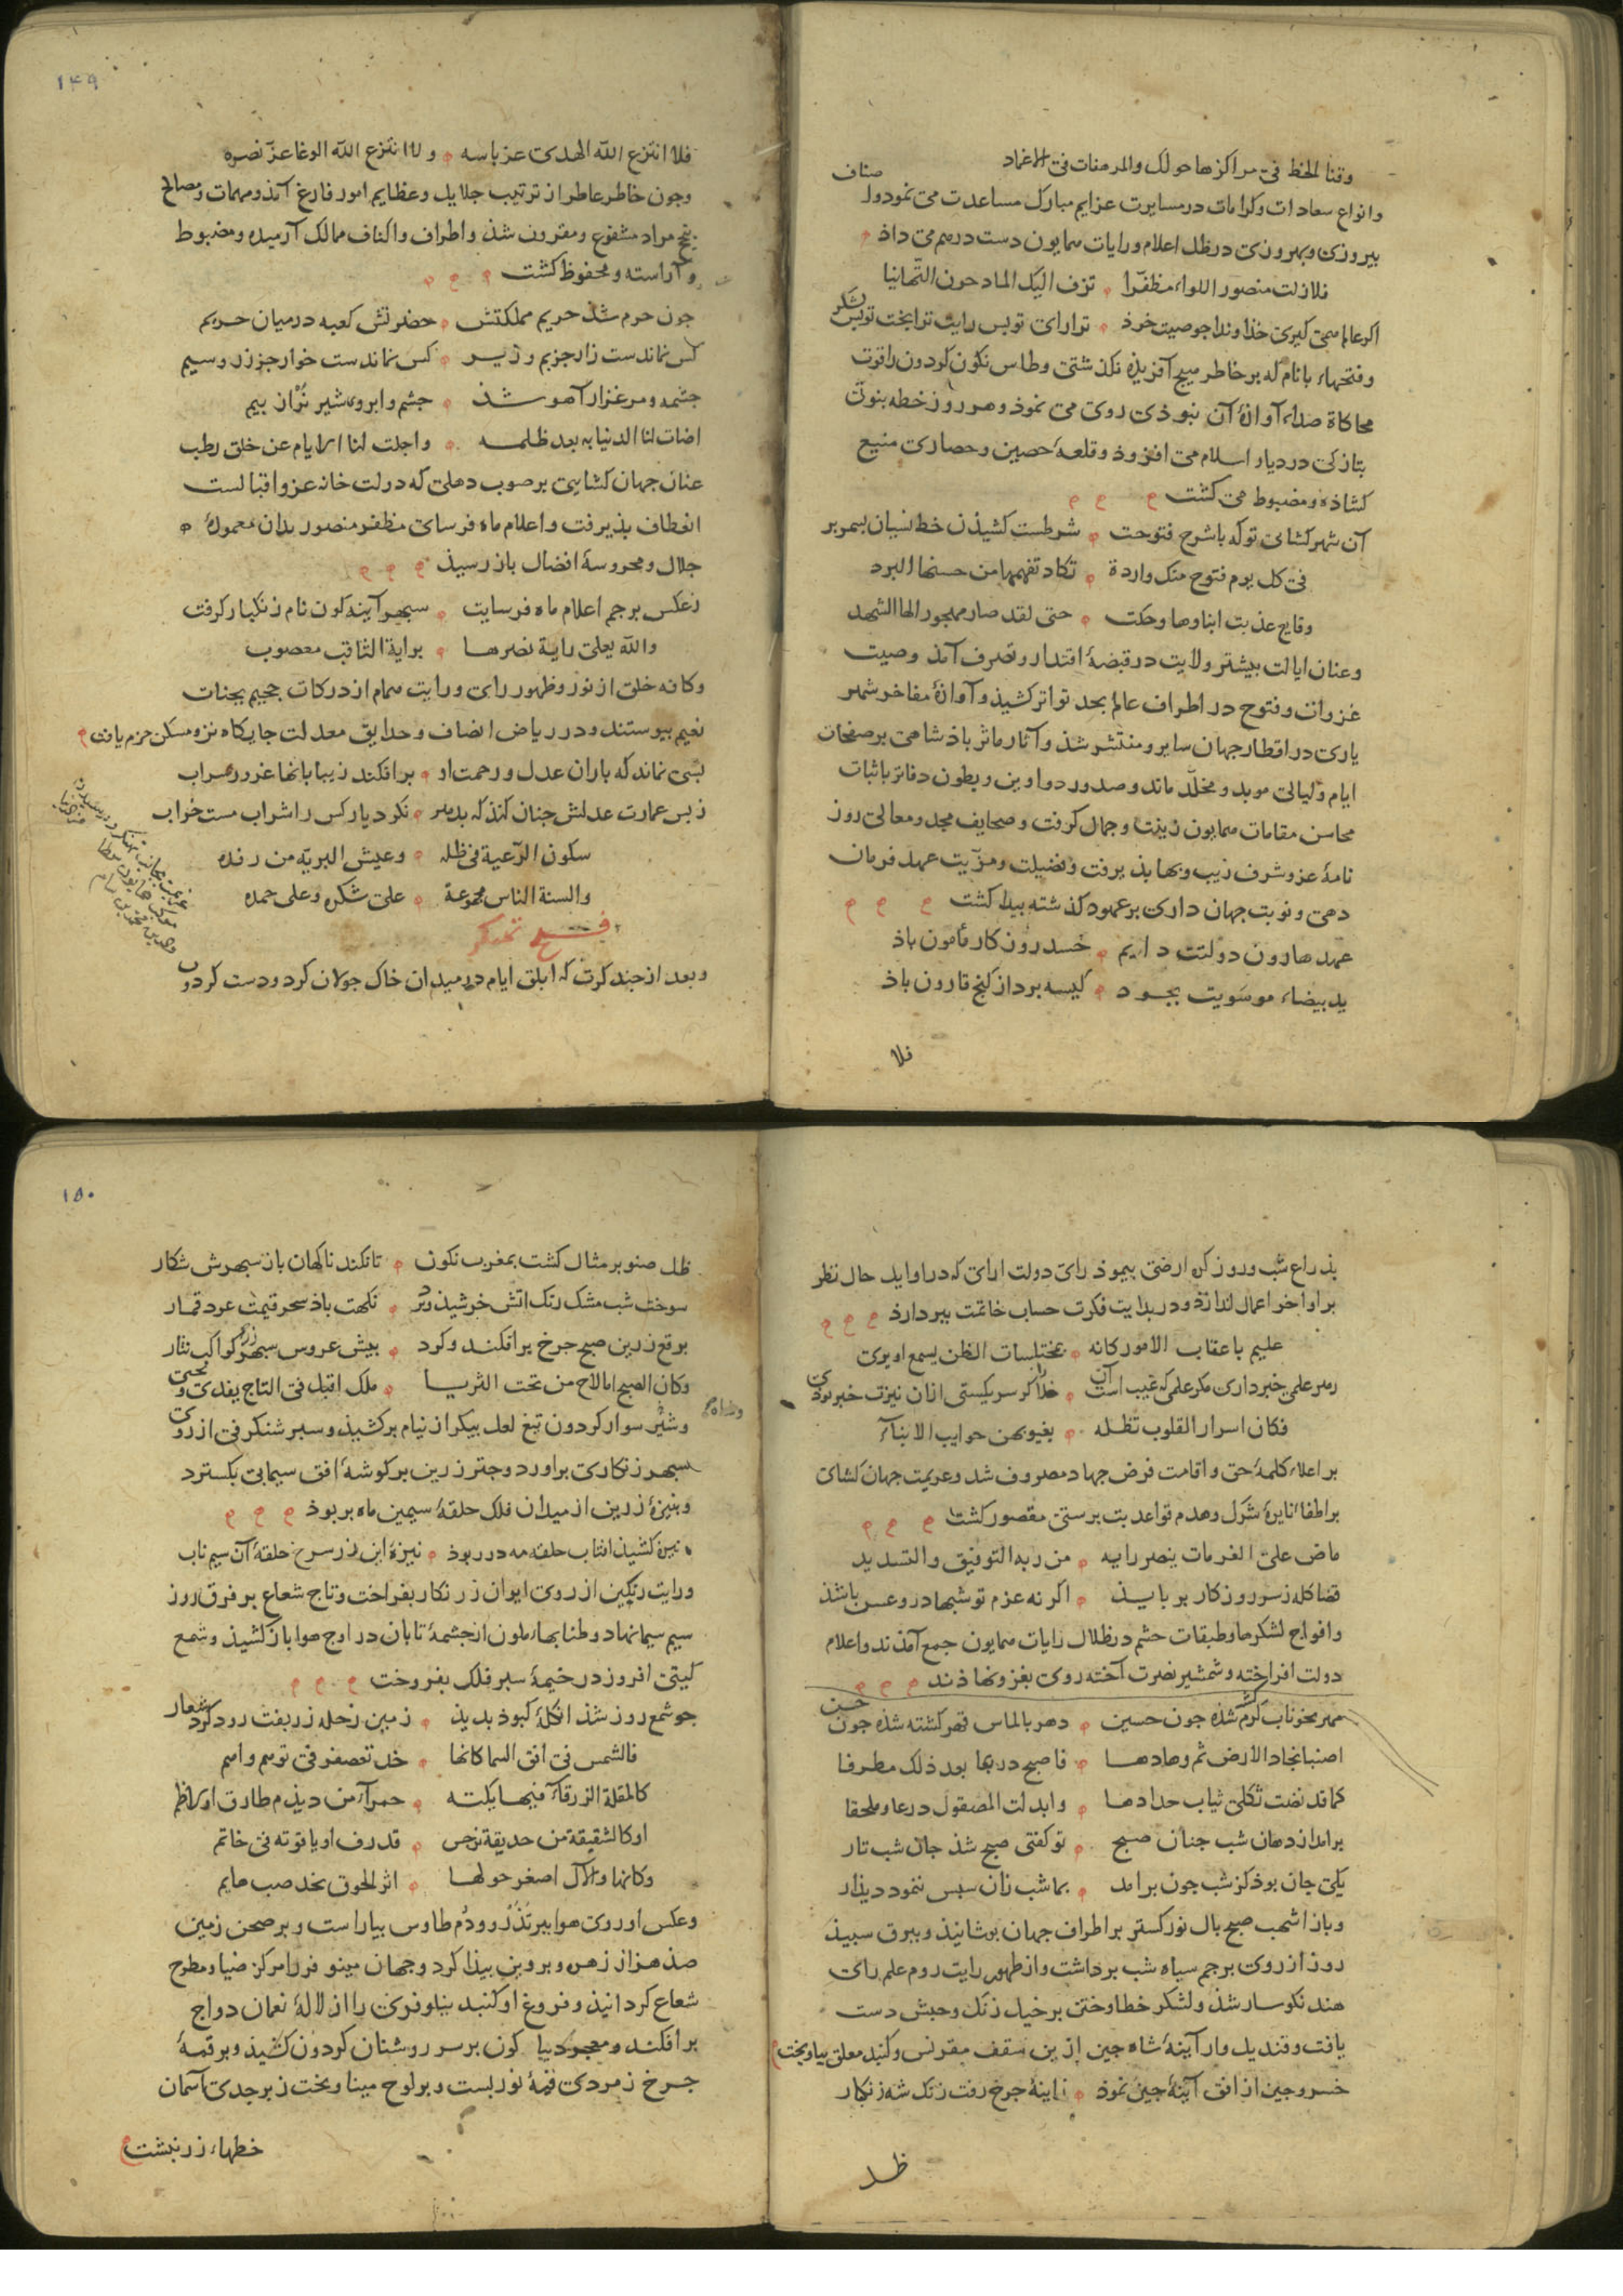 وقنا الخط فی مراکزها حولک والمرهفات فی الاغماد
وانواع سعادات وکرامات در مسایرت عزایم مبارک مساعدت می نمود و اصناف
بیروزی و بهروزی در ظل اعلام و رایات همایون دست در هم می داذ
فلا زلت منصور اللواء مظفرا تزف الیک المادحون التهانیا
اکر عالم همی کیری خذاوندا جو صیت خوذ ترا رای تو بس رایت ترا بخت تو بس لشکر
وفتحهاء بانام که بر خاطر هیج آفریذه نکذشتی وطاس نکون کردون را قوت
محاکاة صداء آوازۀ آن نبوذی روی می نموذ وهر روز خطه بنوی
بتازکی در دیار اسلام می افزوذ و قلعۀ حصین وحصاری منیع
کشاذه ومضبوط می کشت
آن شهر کشای تو که با شرح فتوحت شرطست کشیذن خط نسیان بسمر بر
فی کل یوم فتوح منک واردة تکاد تفهمها من حسنها البرد
وقایع عذبت انباوها وحکت حتی لقد صار مهجورا لها الشهد
وعنان ایالت بیشتر ولایت در قبضۀ اقتدار وتصرف آمذ وصیت
غزوات وفتوح در اطراف عالم بحد تواتر کشیذ وآوازۀ مفاخر شهر
یاری در اقطار جهان سایر ومنتشر شذ وآثار ماثر باذشاهی بر صفحات
ایام و لیالی موبد ومخلّد ماند وصدور دواوین وبطون دفاتر باثبات
محاسن مقامات همایون زینت وجمال کرفت وصحایف مجد ومعالی روز
نامۀ عز وشرف زیب وبها بذیرفت وفضیلت ومزیّت عهد فرمان
دهی ونوبت جهان داری بر عهود کذشته بیدا کشت
عهد هارون دولتت دایم حسد روزکار مأمون باذ
ید بیضاء موسویت بجود کیسه برداز کنج قارون باذ
فلا
۱۴۹
فلا انتزع الله الهدی عز باسه ولا انتزع الله الوغا عزّ نصره
وجون خاطر عاطر از ترتیب جلایل وعظایم امور فارغ آمذ ومهمات ومصالح
بنجح مراد مشفوع ومقرون شذ واطراف واکناف ممالک آرمیده ومضبوط
وآراسته ومحفوظ کشت
جون حرم شذ حریم مملکتش حضرتش کعبه در میان حریم
کس نماندست زار جز بم و زیر کس نماندست خوار جز زر وسیم
جشمه ومرغزار آهو شذ جشم وابروی شیر نرّ از بیم
اضات لنا الدنیا به بعد ظلمه واجلت لنا الایام عن خلق رطب
عنان جهان کشایی بر صوب دهلی که دولت خانه عز واقبالست
انعطاف بذیرفت واعلام ماه فرسای مظفر منصور بدان معمورۀ
جلال ومحروسۀ افضال باز رسیذ
زعکس برجم اعلام ماه فرسایت سبهر آینه کون نام زنکبار کرفت
والله یعلی رایة نصرها برایة الثاقب معصوب
وکافه خلق از نور وظهور رای ورایت همام از درکات جحیم بجنات
نعیم بیوستند ودر ریاض انصاف وحدایق معدلت جایکاه نزه ومسکن خرم یافت
بسی نماند که باران عدل ورحمت او برافکند زیبابانها غرور سراب
زبس عمارت عدلش جنان کنذ که بدهر نکرد یار کس را شراب مست خراب
سکون الرّعیة فی ظله وعیش البریّه من رفده
والسنة الناس مجموعة علی شکره وعلی حمده
فتح تهنکر
وبعد از جند کرت که ابلق ایام در میدان خاک جولان کرد ودست کردون
بذراع شب وروز کره ارضی بیموذ رای دولت ارای که در اواید حال نظر
بر اواخر اعمال اندازذ ودر بدایت فکرت حساب خاتمت بیر دارذ
علیم باعقاب الامور کانه بمختلسات الظن یسمع او یری
رهر علمی خبر داری مکر علمی که غیب است آن خدا را کر سر یکیستی از ان نیزت خبر بودی
فکان اسرار القلوب تظله بغیوبهن جوایب الانبآء
بر اعلاء کلمۀ حق واقامت فرض جهاد مصروف شد وعزیمت جهان کشای
بر اطفاء نایرۀ شرک وهدم قواعد بت برستی مقصور کشت
ماض علی الغرمات ینصر رایه من ربه التوفیق والتسدید
قضا کله ز سر روزکار بربایذ اکر نه عزم تو شبها درو عسس باشذ
وافواج لشکرها وطبقات حشم در ظلال رایات همایون جمع آمذند واعلام
دولت افراخته وشمشیر نصرت آخته روی بغزو نهاذند
مهر بخوناب کرم کشته شذه جون حسین دهر بالماس قهر کشته شذه جون حسن
اصنبا بجاد الارض ثم وهادها فاصبح دربها بعد ذلک مطرفا
کما قد نضت ثکلی ثیاب حدادها وابدلت المصقول درعا وملحفا
برامد از دهان شب جنان صبح تو کفتی صبح شذ جان شب تار
یکی جان بوذ کز شب جون برامد بما شب زان سبس ننمود دیذار
وباز اشهب صبح بال نور کستر بر اطراف جهان بوشانیذ وبیرق سبیذ
روز از روی برجم سیاه شب برداشت واز ظهور رایت روم علم رای
هند نکوسار شذ ولشکر خطا وختن بر خیل زنک وحبش دست
یافت وقندیل وار آینۀ شاه جین ازین سقف مقرنس وکنبد معلق بیاویخت
خسرو جین از افق آینۀ جین نموذ زاینۀ جرخ رفت زنک شه زنکبار
ظل
۱۵۰
ظل صنوبر مثال کشت بمغرب نکون تا نکند ناکهان باز سبهرش شکار
سوخت شب مشک رنک اتش خرشیذ وبر نکهت باذ سحر قیمت عود قمار
برقع زرین صبح جرخ برافکند وکرد بیش عروس سبهر زر کواکب نثار
وکان الصبح لما لاح من تحت الثریا ملک اقبل فی التاج یفدی ویحیی
وشیر سوار کردون تیغ لعل بیکر از نیام برکشیذ وسبر شنکرفی از روی
سبهر زنکاری براورد وجتر زرین بر کوشۀ افق سیمابی بکسترد
وبنیزۀ زرین از میدان فلک حلقۀ سیمین ماه بربوذ
نیزه کشیذ افتاب حلقه مه در ربوذ نیزۀ این زر سرخ حلقۀ آن سیم ناب
ورایت رنکین از روی ایوان زرنکار بفراخت وتاج شعاع بر فرق روز
سیم سیما نهاد وطنابهاء ملون از جشمۀ تابان در اوج هوا باز کشیذ وشمع
کیتی افروز در خیمۀ سبز فلک بفروخت
جو شمع روز شذ از کلۀ کبوذ بدیذ زمین زحله زربفت رود کرد شعار
فالشمس فی افق السما کانها خد تعصفر فی توسم واسم
کالمقلة الزرقاء فیها یکته حمرآء من دیذم طارق او کاظم
او کالشقیقة من حدیقة نرجس قد رف او یاقوته فی خاتم
وکانها والآل اصغر حولها اثر الخوق بخد صب هایم
وعکس او روی هوا ببر تذرو ودُم طاوس بیاراست وبر صحن زمین
صذ هزار زهره وبروین بیذا کرد وجهان مینو فر را مرکز ضیا ومطرح
شعاع کردانیذ وفروغ او کنبد نیلوفری را از لالۀ نعمان دواج
برافکند ومعجر دیبا کون بر سر روشنان کردون کشیذ وبر قمۀ
جرخ زمردی قبۀ نور بست وبر لوح مینا وتخت زبرجدی آسمان
خطهاء زر نبشت